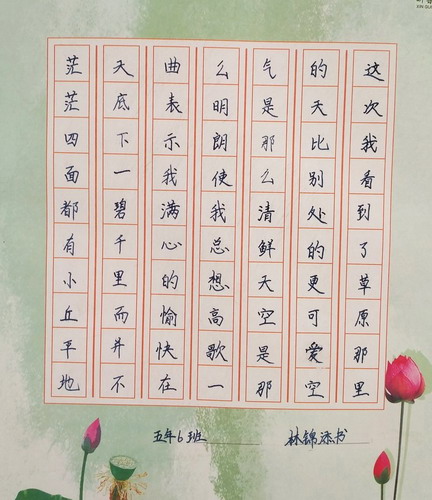 这次我看到了草原那里
的天比别处的更可爱空
气是那么清鲜天空是那
么明朗使我总想高歌一
曲表示我满心的愉快在
天底下一碧千里而并不
茫茫四面都有小丘平地
五年6班 林锦添书